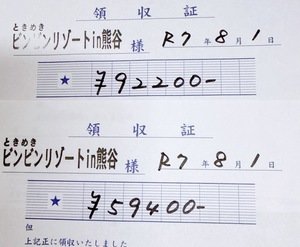 領収証
ときめき
ピンピンリゾートin熊谷 様 R7年8月1日
★ ¥92200-
領収証
ときめき
ピンピンリゾートin熊谷 様 R7年8月1日
★ ¥59400-
但
上記正に領収いたしました